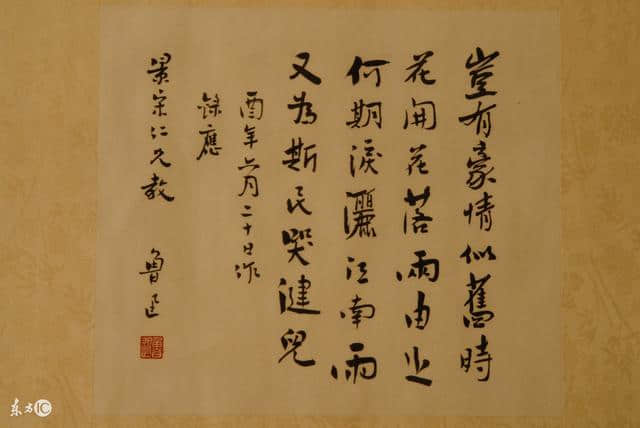 豈有豪情似舊時
花開花落兩由之
何期淚灑江南雨
又為斯民哭健兒
酉年六月二十日作
錄應
景宋仁兄教
魯迅
东方IC